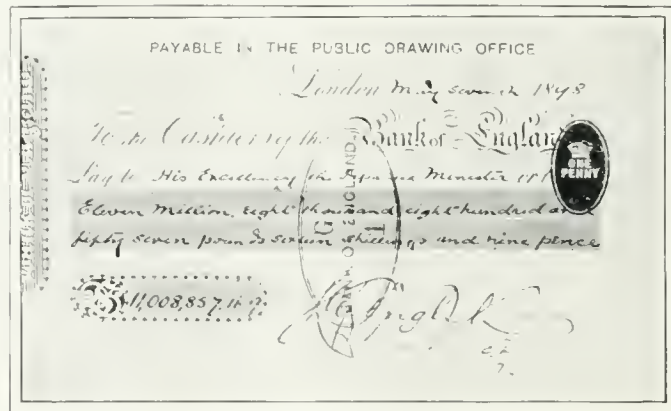 PAYABLE IN THE PUBLIC DRAWING OFFICE
London May seventh 1898
To the Cashiers of the Bank of England
Pay to His Excellency the Japanese Minister
ONE PENNY
Eleven Million, eight thousand eight hundred and
fifty seven pounds sixteen shillings and nine pence
BANK OF ENGLAND
£11,008,857.16.9